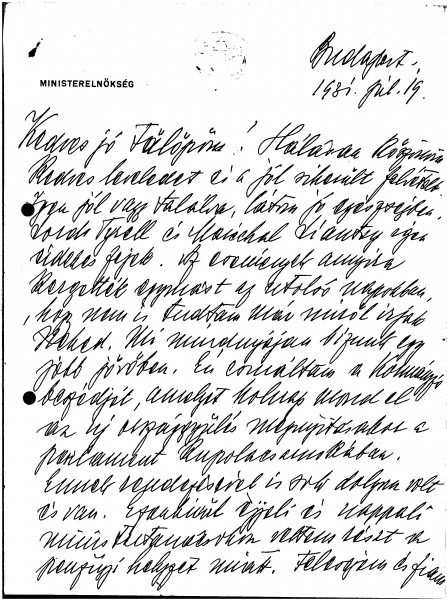 Budapest,
1931. júl. 19.
MINISTERELNÖKSÉG
Kedves jó Fülöpöm! Hálásan köszönöm
kedves leveledet és a jól sikerült felvételt.
Igen jól vagy találva, látom jó egészségben,
Lords Tyrell és Marchal Liautey igen
érdekes fejek. Az események annyira
kergették egymást az utolsó napokban,
hogy nem is tudtam már miről írjak
Neked. Mi mindnyájan bízunk egy
jobb jövőben. Én csináltam a Kormányzó
beszédjét, amelyet holnap mond el
az új országgyűlés megnyitásakor a
parlament kupolacsarnokában.
Ennek rendezésével is sok dolgom volt
és van. Ezenkívül éjjeli és nappali
ministertanácsban vettem részt a
pénzügyi helyzet miatt. Feleségem és fiam